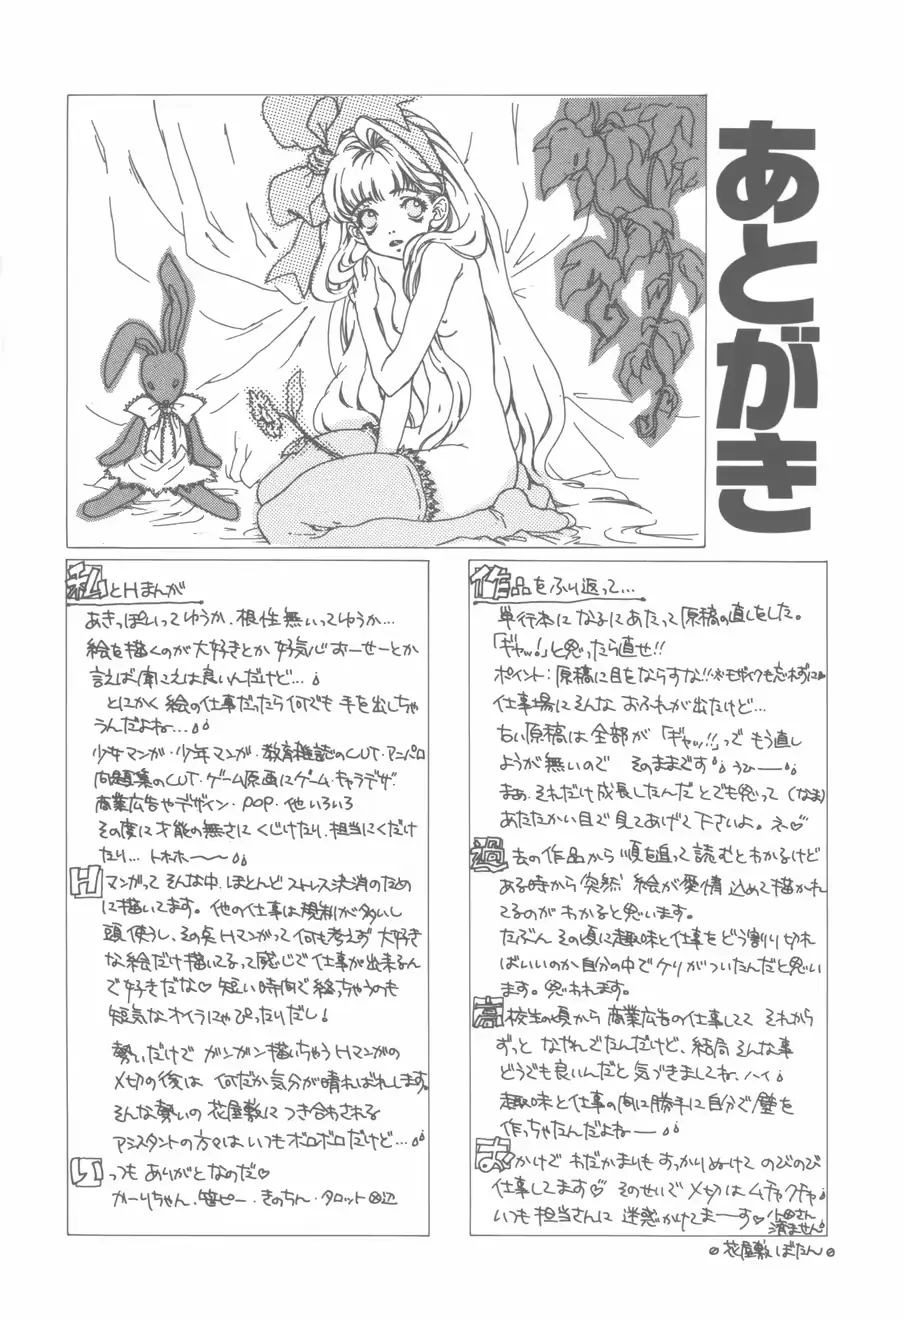 あとがき
作品をふり返って…
単行本になるにあたって原稿の直しをした。
「ギャッ!」と思ったら直せ!!
ポイント:原稿に目をならすな!!
仕事場にそんな おふれが出たけど…
古い原稿は全部が「ギャッ!!」で もう直し
ようが無いので そのままです うひーー
まぁ、それだけ成長したんだ とでも思って (なま)
あたたかい目で見てあげて下さいよ。ネ♡
過去の作品から順を追って読むとわかるけど
ある時から突然 絵が愛情込めて描かれ
てるのが わかると思います。
たぶん その頃に趣味と仕事をどう割り切れ
ばいいのか自分の中でケリがついたんだと思い
ます。思われます。
高校生の頃から 商業広告の仕事してて それから
ずっと なやんでたんだけど、結局そんな事
どうでも良いんだと気づきましてね、ハイ
趣味と仕事の間に勝手に自分で壁を
作っちゃたんだよねー
おかげで わだかまりも すっかりぬけて のびのび
仕事してます♡ そのせいで〆切は ムチャクチャ
いつも担当さんに迷惑かけてまーーす♡ 小田さん
済ません。
花屋敷ぼたん
私とHまんが
あきっぽいってゆうか、根性無いってゆうか…
絵を描くのが大好きとか 好奇心おーせーとか
言えば聞こえは良いんだけど…
とにかく 絵の仕事だったら何でも 手を出しちゃ
うんだよね…
少女マンガ・少年マンガ・教育雑誌のCUT・アニパロ
問題集のCUT・ゲーム原画にゲーム・キャラデザ
商業広告やデザイン・POP・他いろいろ
その度に才能の無さに くじけたり、担当にくだけ
たり… トホホ〜〜
Hマンガって そんな中、ほとんど ストレス決消のため
に描いてます。他の仕事は規制が多いし
頭使うし、その点Hマンガって何も考えず 大好き
な絵だけ描いてるって感じで仕事が出来るん
で好きだな♡ 短い時間で終っちゃうのも
短気なオイラにゃぴったりだし!
勢いだけで ガンガン描いちゃうHマンガの
〆切の後は 何だか気分が晴ればれします。
そんな勢いの 花屋敷に つき合わされる
アシスタントの方々は、いつもボロボロだけど…
いつも ありがとなのだ♡
かーりちゃん・笹ピー・きのちん・タロット